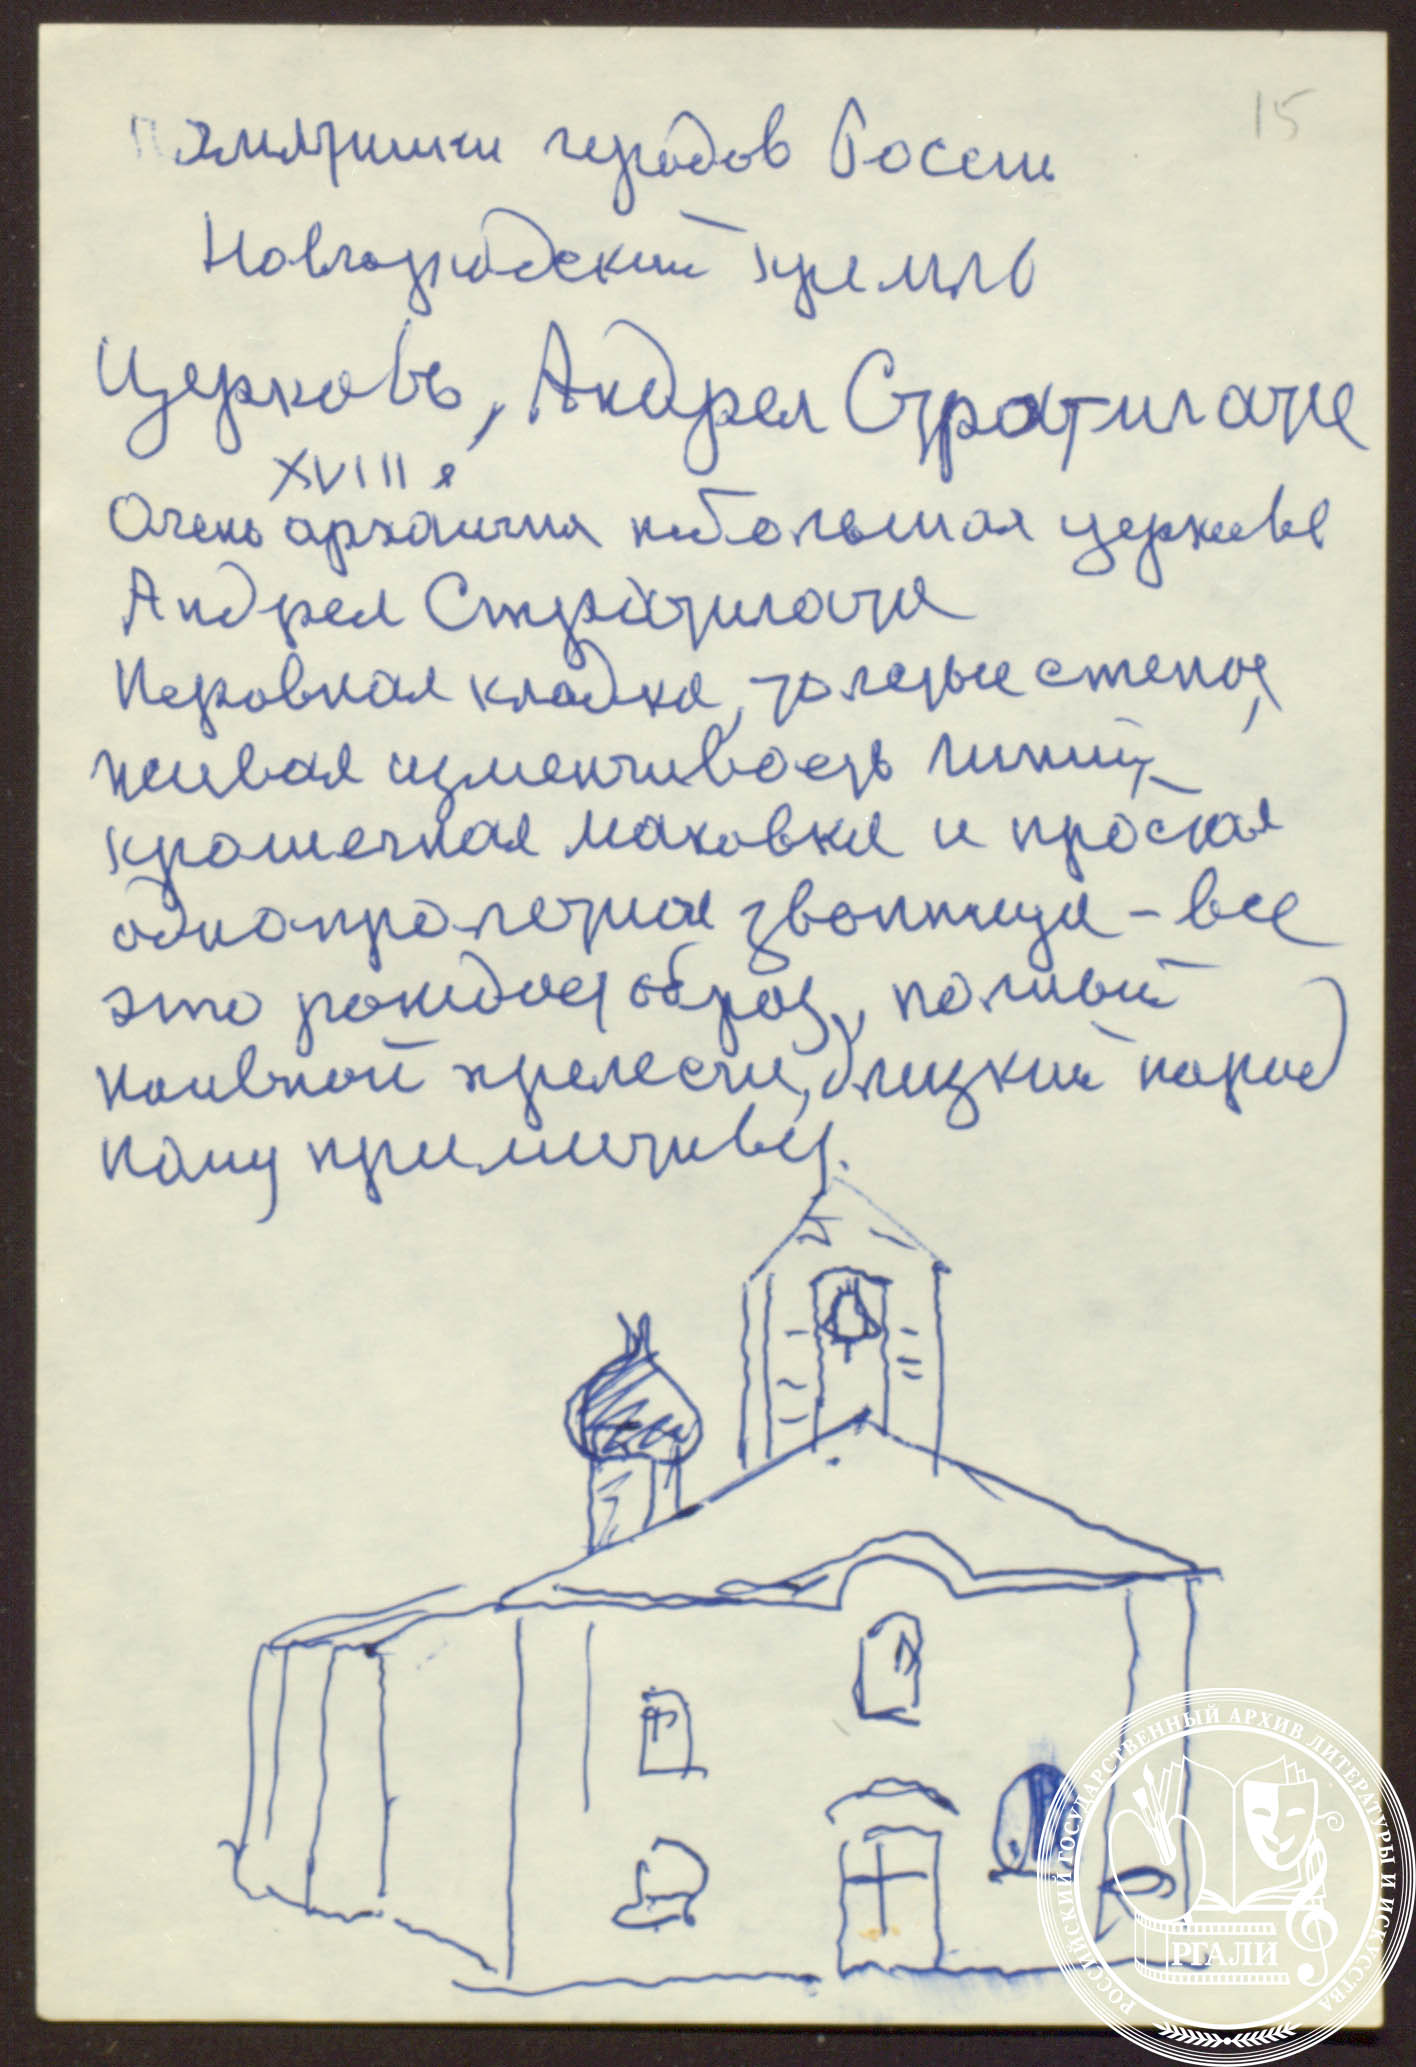 15
Памятники городов России
Новгородский кремль
Церковь, Андрея Стратилата
XVIII в
Очень архаична небольшая церковь
Андрея Стратилата
Неровная кладка, толстые стены,
живая изменчивость линий,
крошечная маковка и простая
однопролетная звонница – все
это рождает образ, полный
наивной прелести, близкий народ
ному примитиву.
РОССИЙСКИЙ ГОСУДАРСТВЕННЫЙ АРХИВ ЛИТЕРАТУРЫ И ИСКУССТВА
РГАЛИ